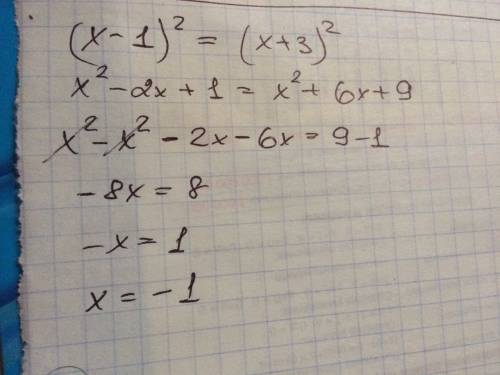 (x-1)² = (x+3)²
x² - 2x + 1 = x² + 6x + 9
x² - x² - 2x - 6x = 9 - 1
- 8x = 8
- x = 1
x = - 1